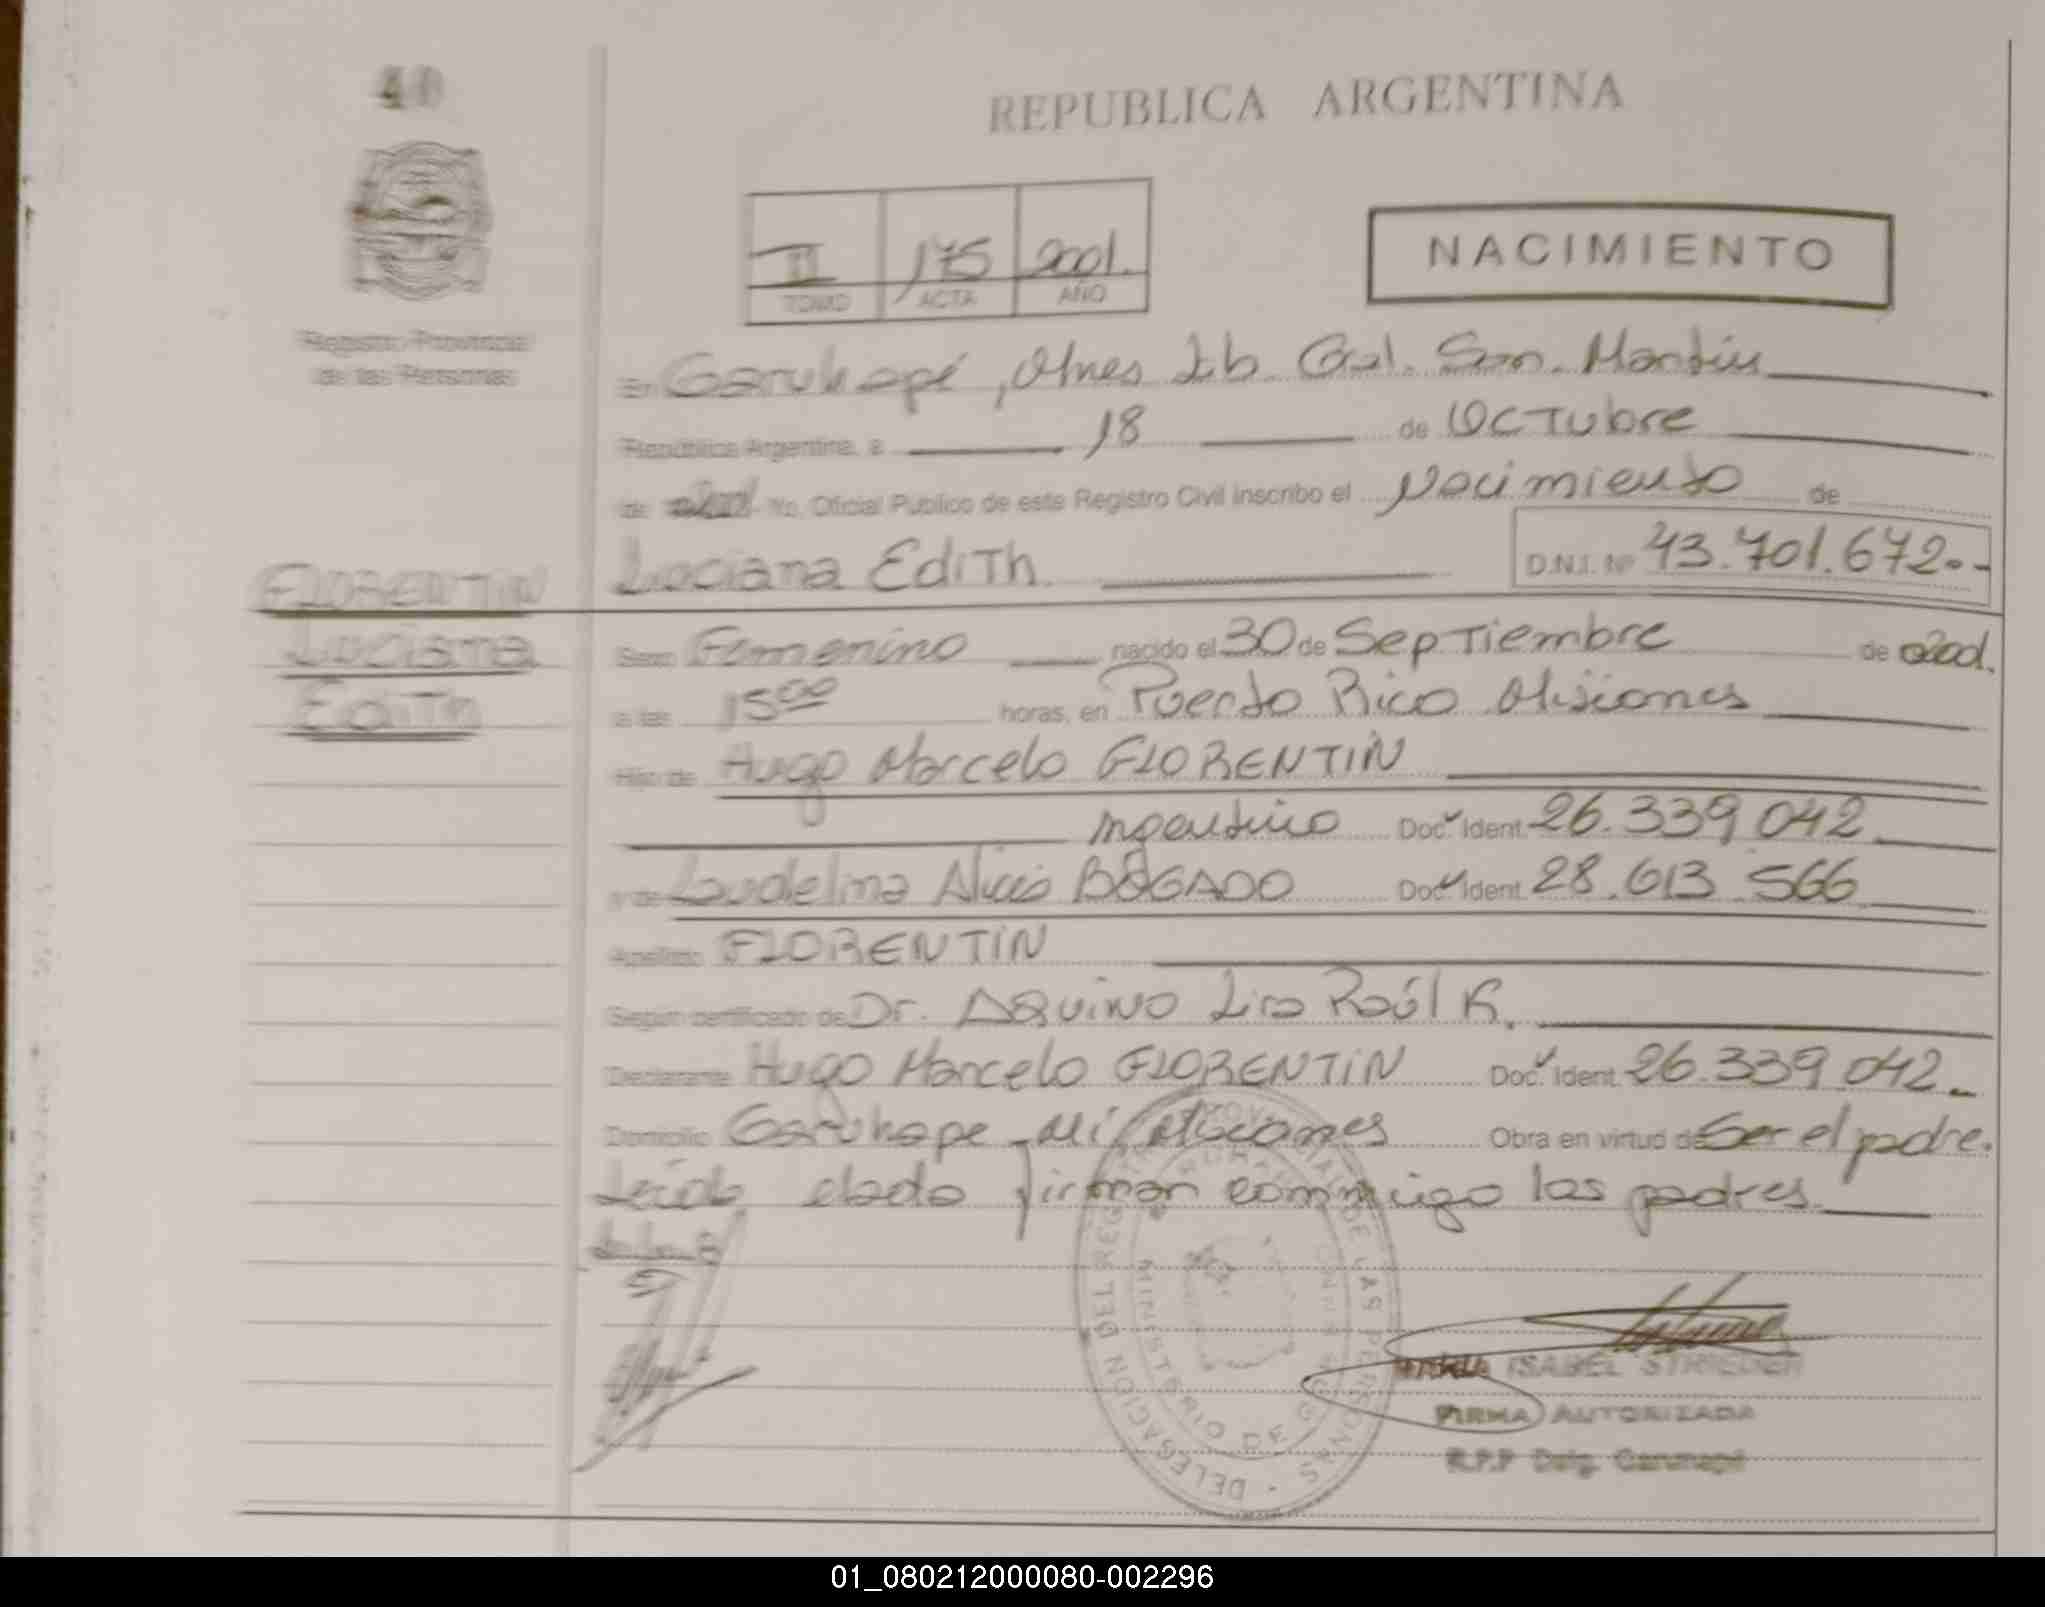 40
REPUBLICA ARGENTINA
Registro Provincial
de las Personas
II 175 2001.
TOMO ACTA AÑO
NACIMIENTO
En Garuhapé, Mnes Lb. Gral. San. Martín
República Argentina, a 18 de Octubre
de 2001 Yo, Oficial Público de este Registro Civil inscribo el Nacimiento de
Luciana Edith. D.N.I. Nº 43.701.672.-
FLORENTIN
Luciana
Edith
Sexo Femenino nacido el 30 de Septiembre de 2001.
a las 15⁰⁰ horas, en Puerto Rico Misiones
Hijo de Hugo Marcelo FLORENTIN
Argentino Doc. Ident. 26.339.042
y de Laudelina Alicia BOGADO Doc. Ident. 28.613.566
Apellido FLORENTIN
Según certificado de Dr. AQUINO Raúl R.
Declarante Hugo Marcelo FLORENTIN Doc. Ident. 26.339.042
Domicilio Garuhape Misiones Obra en virtud de Ser el padre.
Leída el acta firman conmigo los padres
DELEGACION DEL REGISTRO PROVINCIAL DE LAS PERSONAS
MINISTERIO DE
MARIA ISABEL STRIEDER
FIRMA AUTORIZADA
R.P.P Delg. Garuhapé
01_080212000080-002296